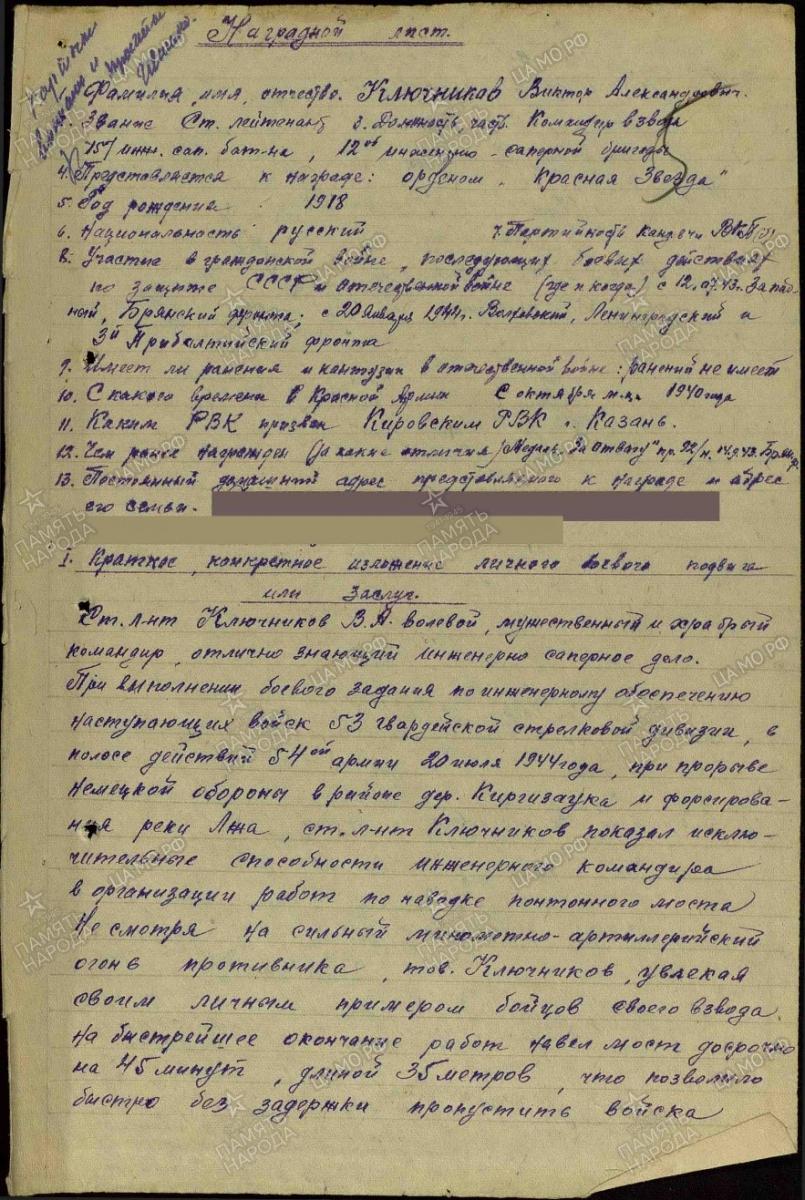 Наградной лист.
Фамилия, имя, отчество. Ключников Виктор Александрович.
Звание Ст. лейтенант 3. Должность часть Командир взвода
157 инж. сап. бат-на, 12ой инженерно-саперной бригады
4. Представляется к награде: орденом "Красная Звезда"
5. Год рождения 1918
6. Национальность русский 7. Партийность канд. ВКП(б)
8. Участие в гражданской войне, последующих боевых действиях
по защите СССР и отечественной войне (где и когда) с 12.07.43. Запад-
ной, Брянский фронта; с 20 января 1944г. Волховский, Ленинградский и
3й Прибалтийский фронта
9. Имеет ли ранения и контузии в отечественной войне: ранений не имеет
10. С какого времени в Красной Армии С октября м-ца 1940 года
11. Каким РВК призван Кировским РВК г. Казань.
12. Чем ранее награжден (за какие отличия) Медаль "За отвагу" пр. 92/н. 14.9.43.
13. Постоянный домашний адрес представляемого к награде и адрес
его семьи.
I. Краткое, конкретное изложение личного боевого подвига
или заслуг.
Ст. л-нт Ключников В.А. волевой, мужественный и храбрый
командир, отлично знающий инженерно саперное дело.
При выполнении боевого задания по инженерному обеспечению
наступающих войск 53 гвардейской стрелковой дивизии, в
полосе действий 54ой армии 20 июля 1944 года, при прорыве
немецкой обороны в районе дер. Киргизаука и форсирова-
ния реки Лжа, ст. л-нт Ключников показал исклю-
чительные способности инженерного командира
в организации работ по наводке понтонного моста
Не смотря на сильный минометно-артиллерийский
огонь противника, тов. Ключников, увлекая
своим личным примером бойцов своего взвода
на быстрейшее окончание работ навел мост досрочно
на 45 минут, длиной 35 метров, что позволило
быстро без задержки пропустить войска
ПАМЯТЬ НАРОДА
ЦАМО.РФ